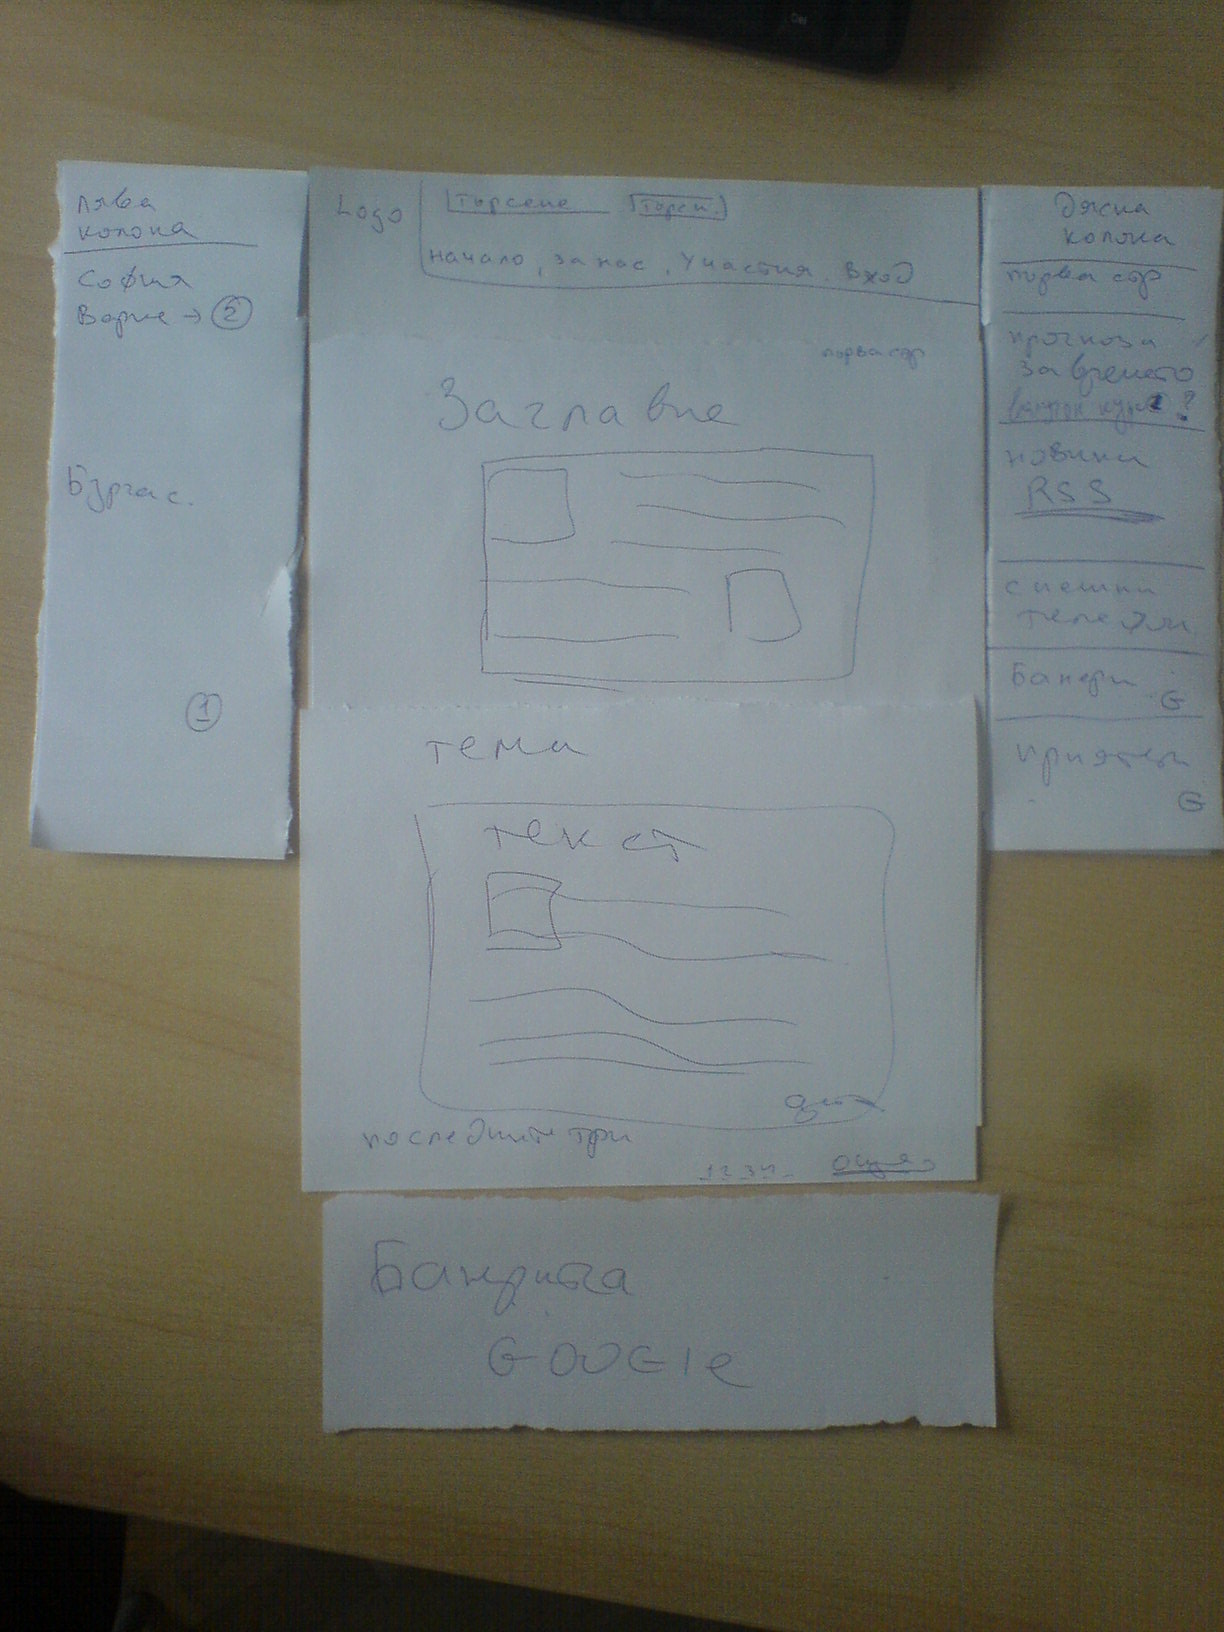 лява
колона
София
Варна → 2
Бургас.
1
Logo
Търсене Търси
начало, за нас, Участия. Вход
първа стр
Заглавие
тема
текст
дата
последните три
Банерита
GOOGle
Дясна
колона
първа стр
прогноза
за времето
новини
RSS
спешни
телефони
Банери G
приятели
G